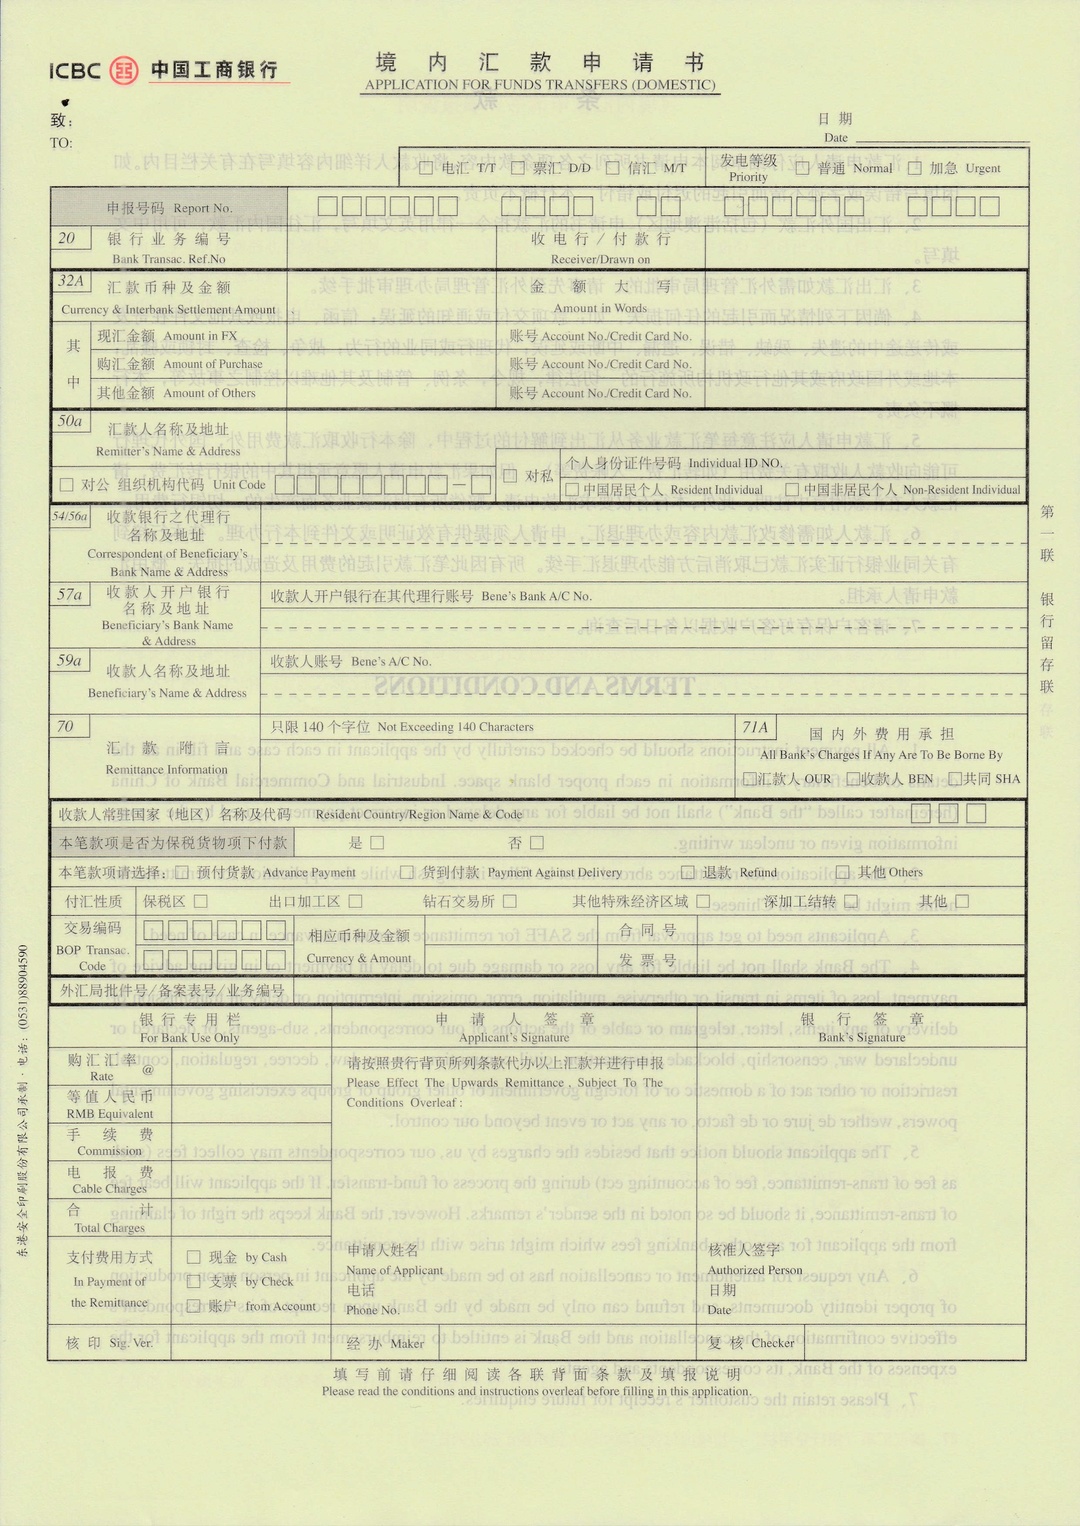 ICBC 中国工商银行
境内汇款申请书
APPLICATION FOR FUNDS TRANSFERS (DOMESTIC)
致:
TO:
日期
Date
电汇 T/T 票汇 D/D 信汇 M/T 发电等级 Priority 普通 Normal 加急 Urgent
申报号码 Report No.
20 银行业务编号 收电行/付款行
Bank Transac. Ref.No Receiver/Drawn on
32A 汇款币种及金额 金额大写
Currency & Interbank Settlement Amount Amount in Words
其中
现汇金额 Amount in FX 账号 Account No./Credit Card No.
购汇金额 Amount of Purchase 账号 Account No./Credit Card No.
其他金额 Amount of Others 账号 Account No./Credit Card No.
50a 汇款人名称及地址
Remitter's Name & Address
对公 组织机构代码 Unit Code 对私 个人身份证件号码 Individual ID NO.
中国居民个人 Resident Individual 中国非居民个人 Non-Resident Individual
54/56a 收款银行之代理行
名称及地址
Correspondent of Beneficiary's
Bank Name & Address
57a 收款人开户银行
名称及地址
Beneficiary's Bank Name
& Address
收款人开户银行在其代理行账号 Bene's Bank A/C No.
59a 收款人名称及地址
Beneficiary's Name & Address
收款人账号 Bene's A/C No.
70 汇款附言
Remittance Information
只限 140 个字位 Not Exceeding 140 Characters
71A 国内外费用承担
All Bank's Charges If Any Are To Be Borne By
汇款人 OUR 收款人 BEN 共同 SHA
收款人常驻国家（地区）名称及代码 Resident Country/Region Name & Code
本笔款项是否为保税货物项下付款 是 否
本笔款项请选择: 预付货款 Advance Payment 货到付款 Payment Against Delivery 退款 Refund 其他 Others
付汇性质 保税区 出口加工区 钻石交易所 其他特殊经济区域 深加工结转 其他
交易编码
BOP Transac.
Code
相应币种及金额
Currency & Amount
合同号
发票号
外汇局批件号/备案表号/业务编号
银行专用栏 申请人签章 银行签章
For Bank Use Only Applicant's Signature Bank's Signature
购汇汇率 @
Rate
等值人民币
RMB Equivalent
手续费
Commission
电报费
Cable Charges
合计
Total Charges
支付费用方式
In Payment of
the Remittance
现金 by Cash
支票 by Check
账户 from Account
请按照贵行背页所列条款代办以上汇款并进行申报
Please Effect The Upwards Remittance, Subject To The
Conditions Overleaf:
申请人姓名
Name of Applicant
电话
Phone No.
核准人签字
Authorized Person
日期
Date
核印 Sig. Ver. 经办 Maker 复核 Checker
填写前请仔细阅读各联背面条款及填报说明
Please read the conditions and instructions overleaf before filling in this application.
第一联 银行留存联
东港安全印刷股份有限公司承制·电话: (0531)88904590